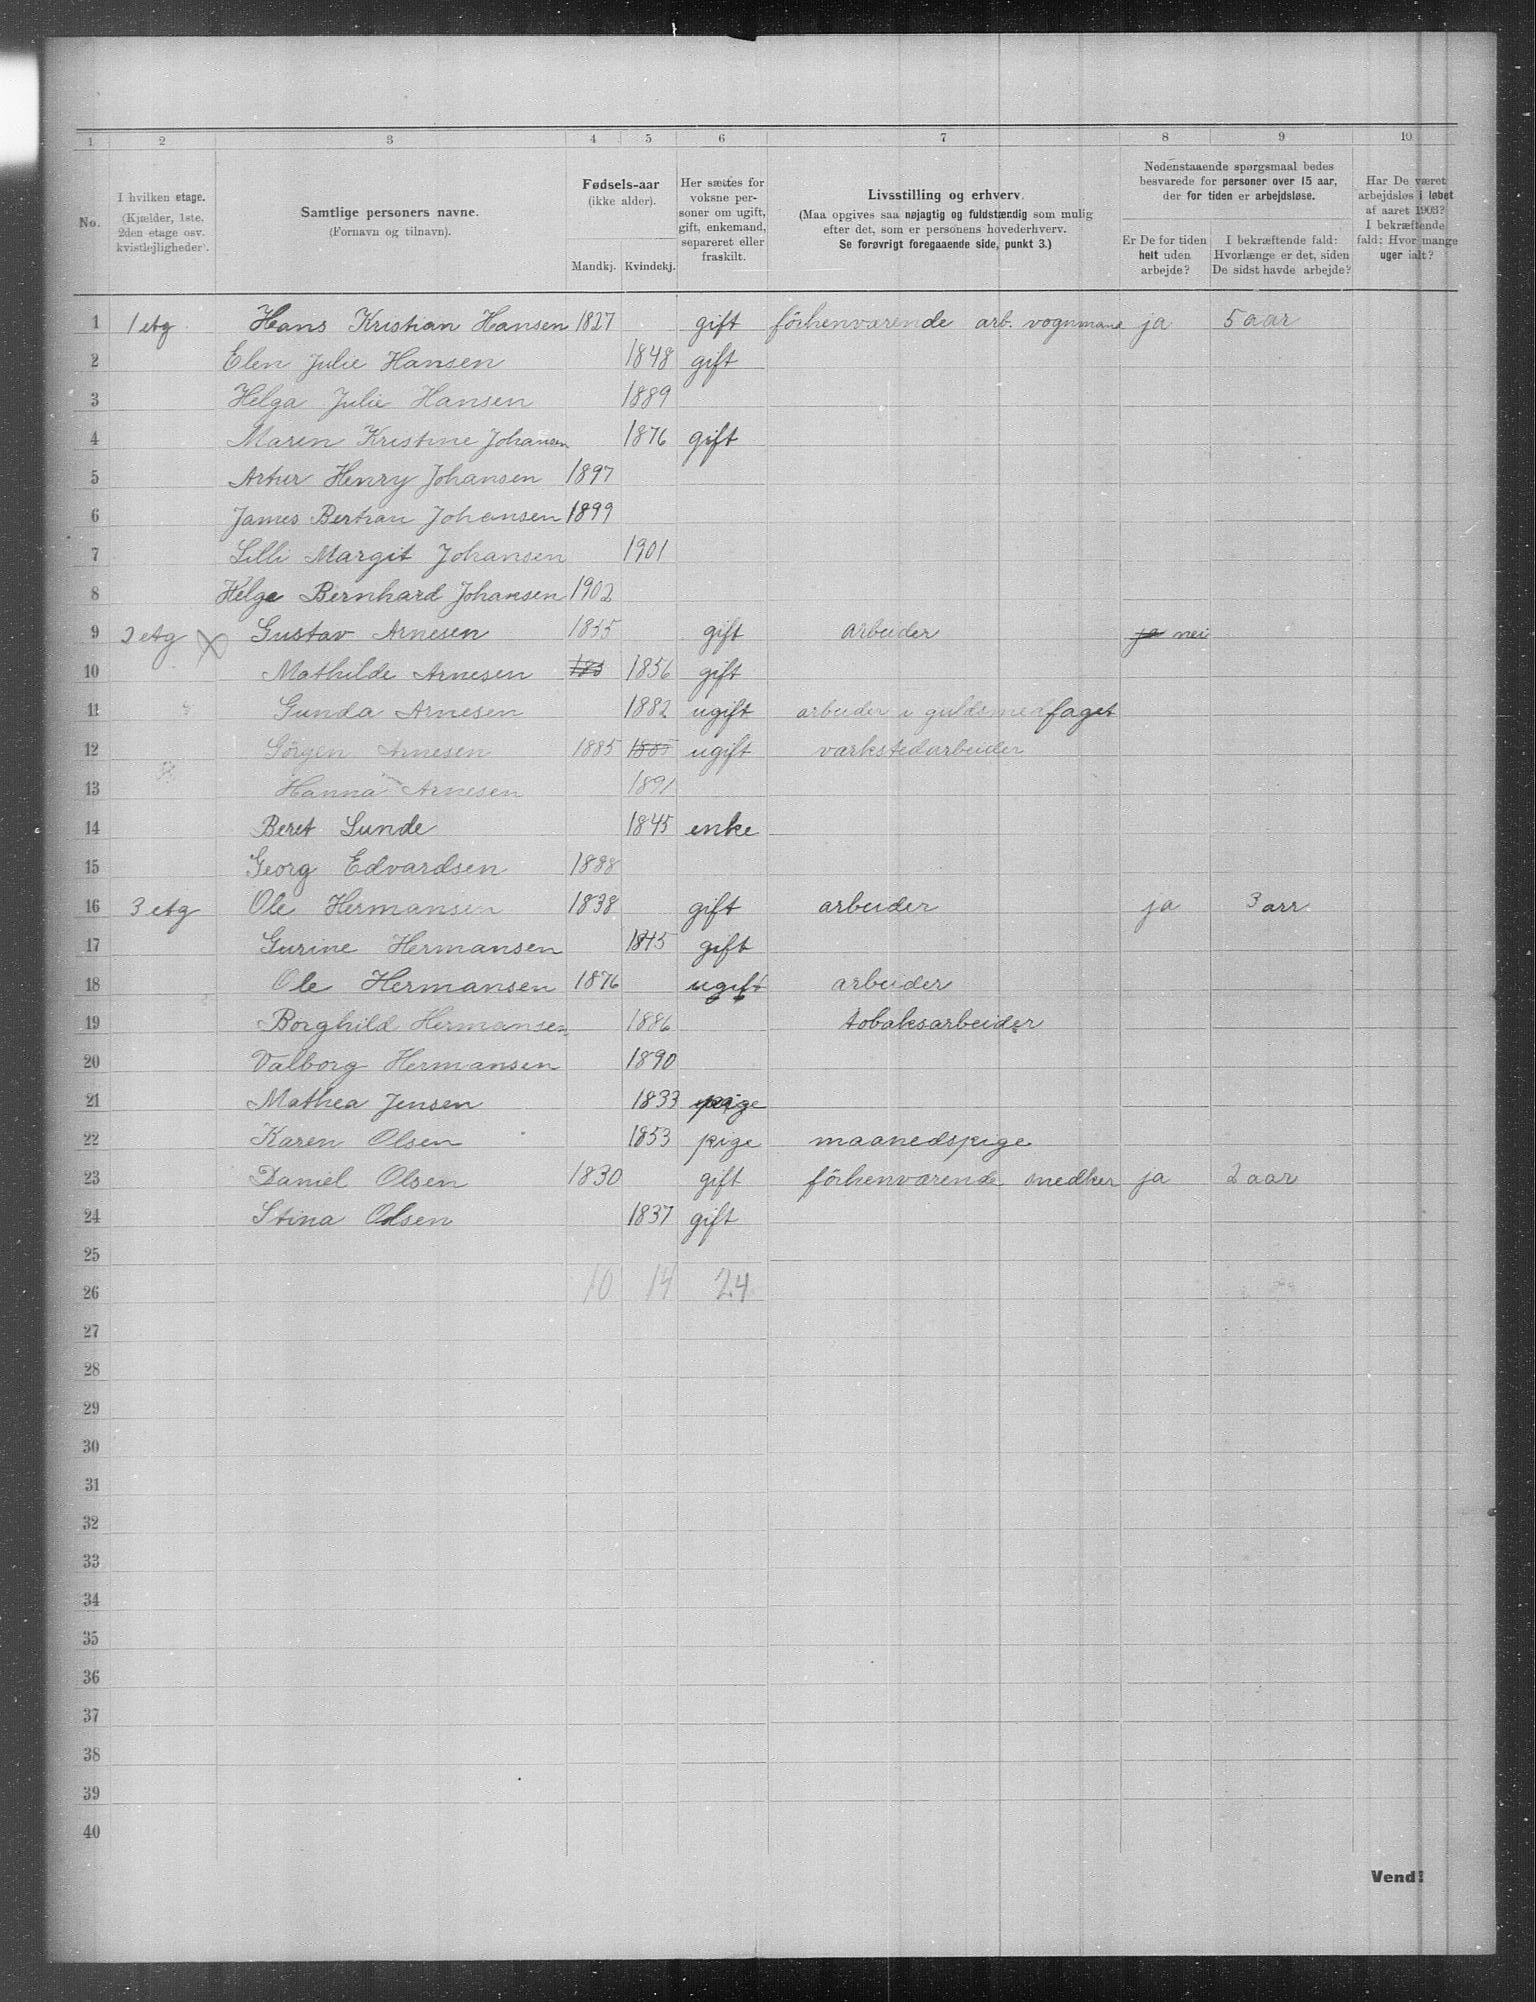 1 2 3 4 5 6 7 8 9 10
No.
I hvilken etage.
(Kjælder, 1ste, 2den etage osv. kvistlejligheder).
Samtlige personers navne.
(Fornavn og tilnavn).
Fødsels-aar
(ikke alder).
Mandkj. Kvindekj.
Her sættes for voksne personer om ugift, gift, enkemand, separeret eller fraskilt.
Livsstilling og erhverv.
(Maa opgives saa nøjagtig og fuldstændig som mulig
efter det, som er personens hovederhverv.
Se forøvrigt foregaaende side, punkt 3.)
Nedenstaaende spørgsmaal bedes
besvarede for personer over 15 aar,
der for tiden er arbejdsløse.
Er De for tiden helt uden arbejde?
I bekræftende fald: Hvorlænge er det, siden De sidst havde arbejde?
Har De været arbejdsløs i løbet af aaret 1903? I bekræftende fald: Hvor mange uger ialt?
1 1 etg Hans Kristian Hansen 1827 gift förhenværende arb. vognmand ja 5 aar
2 Elen Julie Hansen 1848 gift
3 Helga Julie Hansen 1889
4 Maren Kristine Johansen 1876 gift
5 Artur Henry Johansen 1897
6 James Bertran Johansen 1899
7 Lilli Margit Johansen 1901
8 Helge Bernhard Johansen 1902
9 2 etg X Gustav Arnesen 1855 gift arbeider ja nei
10 Mathilde Arnesen 185 1856 gift
11 Gunda Arnesen 1882 ugift arbeider i guldsmedfaget
12 Görgen Arnesen 1885 1885 ugift værkstedarbeider
13 Hanna Arnesen 1891
14 Beret Lunde 1845 enke
15 Georg Edvardsen 1888
16 3 etg Ole Hermansen 1838 gift arbeider ja 3 arr
17 Gurine Hermansen 1845 gift
18 Ole Hermansen 1876 ugift arbeider
19 Borghild Hermansen 1886 tobaksarbeider
20 Valborg Hermansen 1890
21 Mathea Jensen 1833 pige
22 Karen Olsen 1853 pige maanedspige
23 Daniel Olsen 1830 gift förhenværende snedker ja 2 aar
24 Stina Olsen 1837 gift
25
26 10 14 24
27
28
29
30
31
32
33
34
35
36
37
38
39
40
Vend!